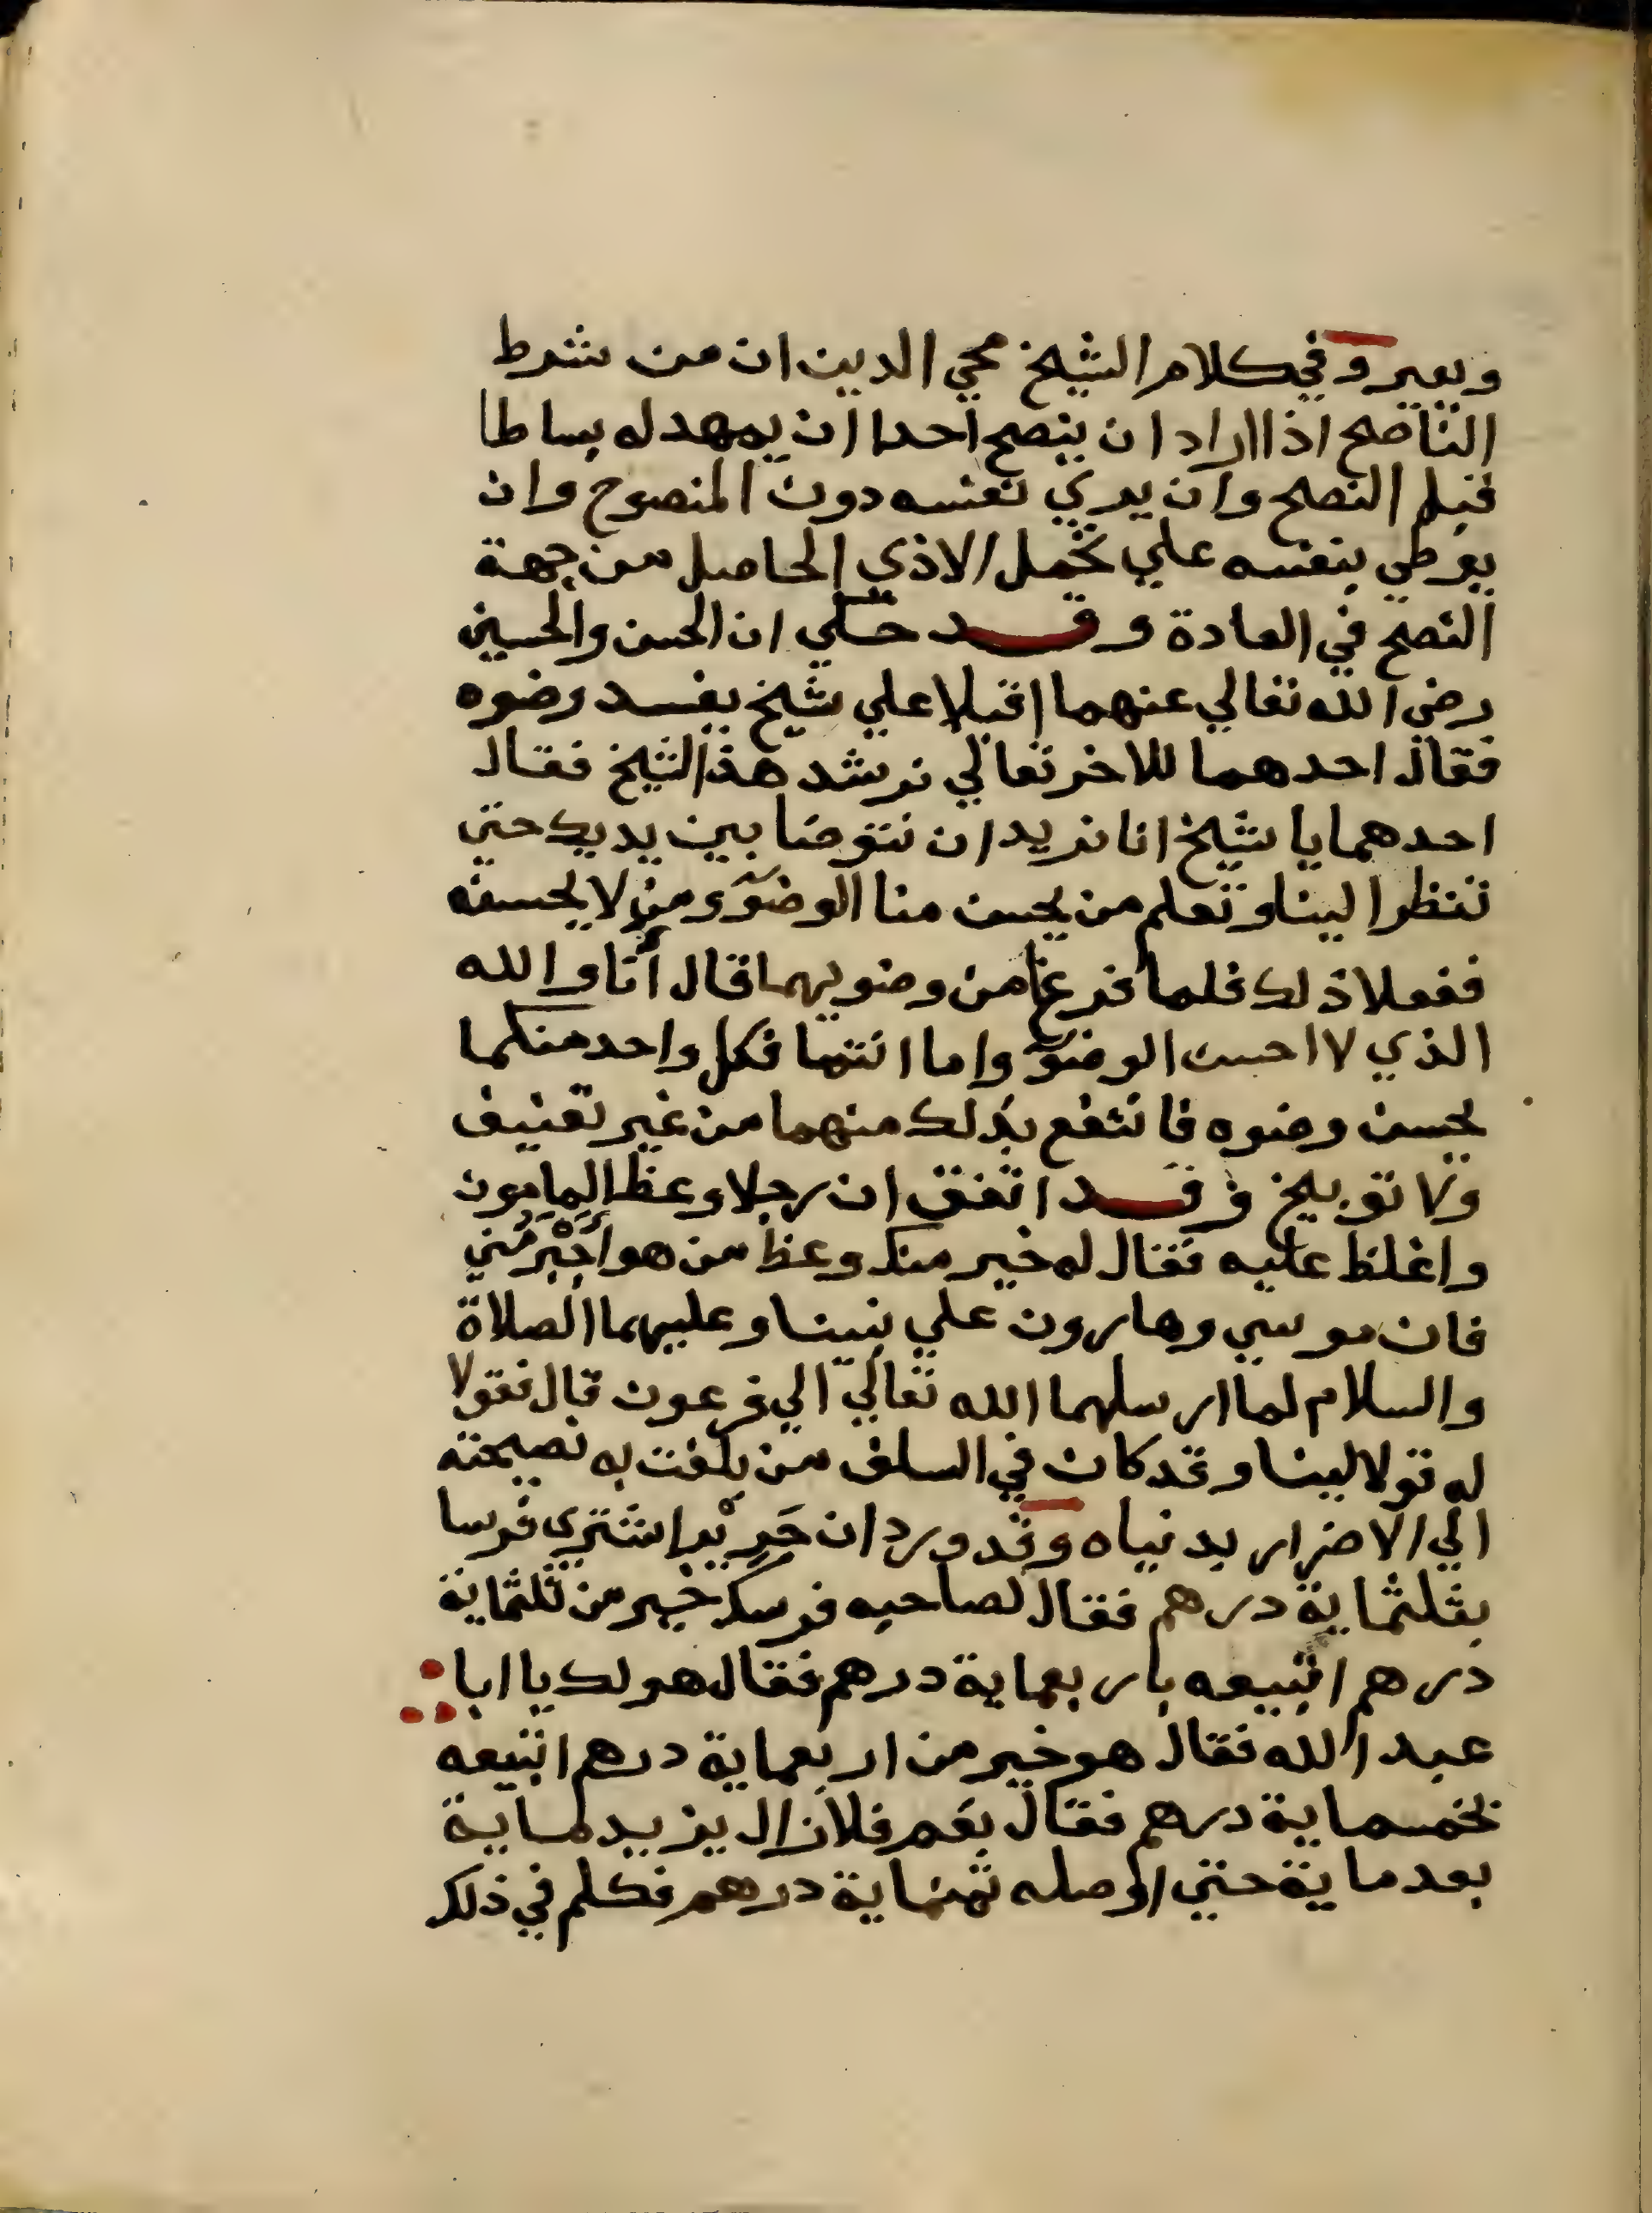 ويعير وفي كلام الشيخ محي الدين ان من شرط
الناصح اذا اراد ان ينصح احدا ان يمهد له بساطا
قبل النصح وان يري نفسه دون المنصوح وان
يوطي بنفسه علي تحمل الاذي الحاصل من جهة
النصح في العادة وقد حكي ان الحسن والحسين
رضي الله تعالي عنهما اقبلا علي شيخ يفسد وضوه
فقال احدهما للاخر تعالي نرشد هذا الشيخ فقال
احدهما يا شيخ انا نريد ان نتوضا بين يديك حتي
تنظر الينا وتعلم من يحسن منا الوضؤ ومن لا يحسنه
ففعلا ذلك فلما فرغا من وضويهما قال انا والله
الذي لا احسن الوضؤ واما انتما فكل واحد منكما
يحسن وضوه فانتفع بذلك منهما من غير تعنيف
ولا توبيخ وقد اتفق ان رجلا وعظ المامون
واغلظ عليه فقال له خير منك وعظ من هو اخير مني
فان موسي وهارون علي نبينا وعليهما الصلاة
والسلام لما ارسلهما الله تعالي الي فرعون قال فقولا
له قولا لينا وقد كان في السلف من بلغت به نصيحته
الي الاضرار بدنياه وقد ورد ان جَرِيْر اشتري فرسا
بثلثماية درهم فقال لصاحبه فرسك خير من ثلثماية
درهم اتبيعه باربعماية درهم فقال هو لك يا ابا
عبد الله فقال هو خير من اربعماية درهم اتبيعه
بخمسماية درهم فقال نعم فلا زال يزيد لماية
بعد ماية حتي اوصله ثمنماية درهم فكلم في ذلك